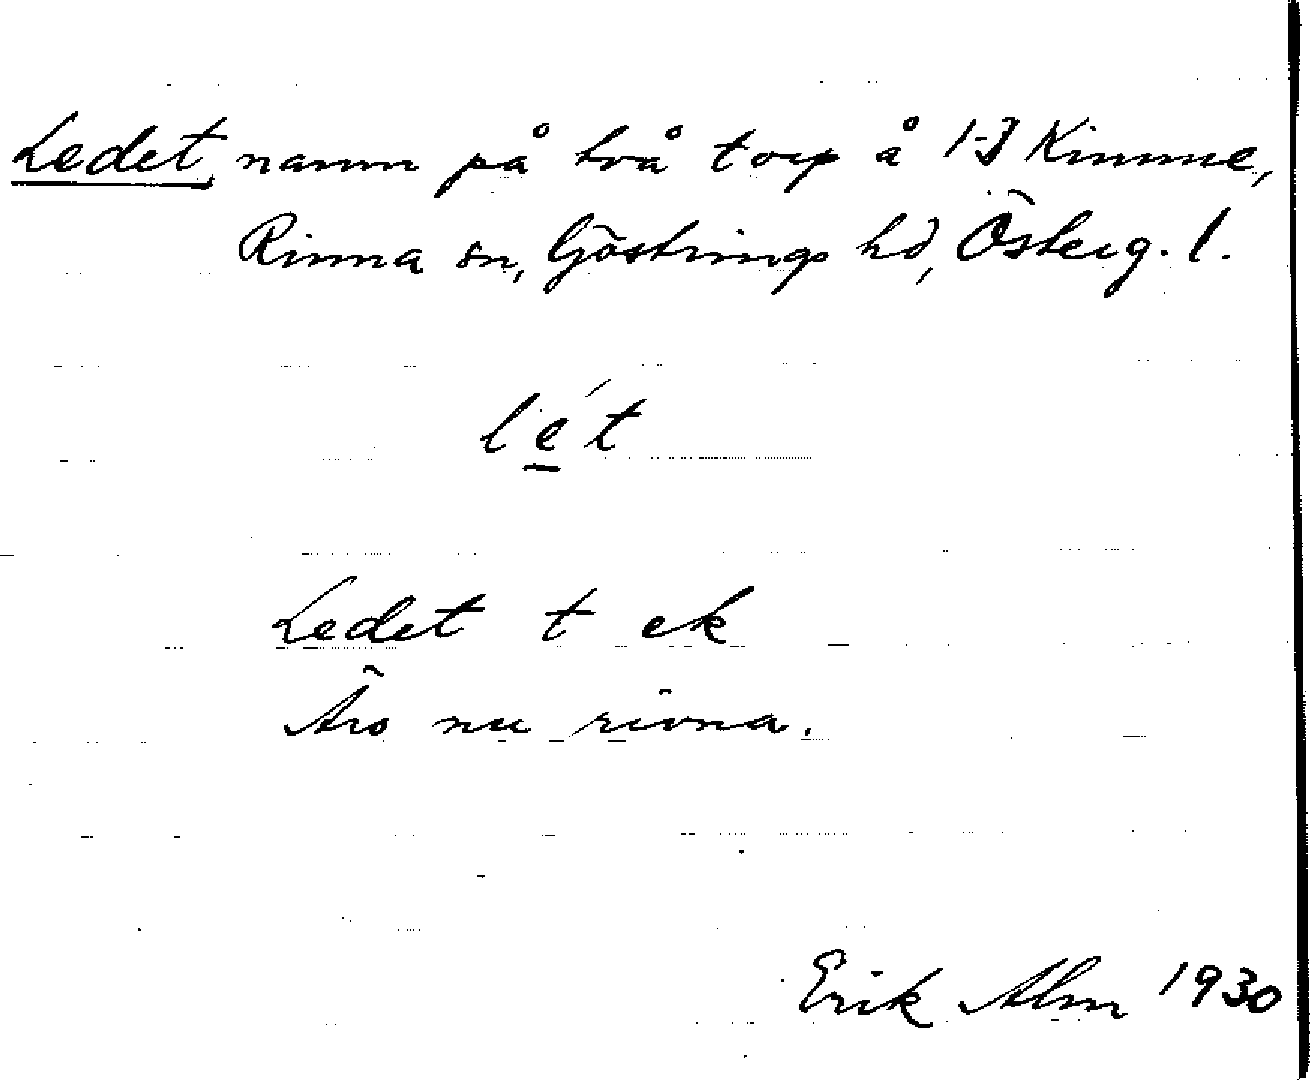 Ledet, namn på två torp å 1-3 Kimme,
Rinna sn, Göstrings hd, Österg. l.
lé̲t
Ledet t ek
Äro nu rivna.
Erik Alm 1930